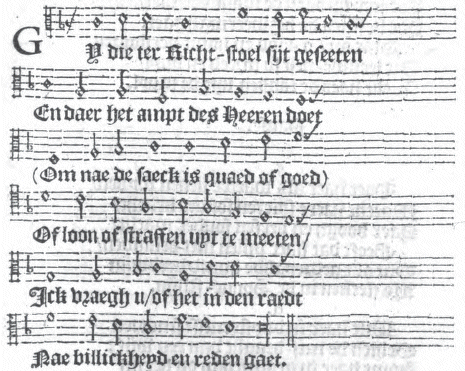 GY die ter Richt-stoel sijt geseeten
En daer het ampt des Heeren doet
(Om nae de saeck is quaed of goed)
Of loon of straffen uyt te meeten/
Ick vraegh u/of het in den raedt
Nae billickheyd en reden gaet.